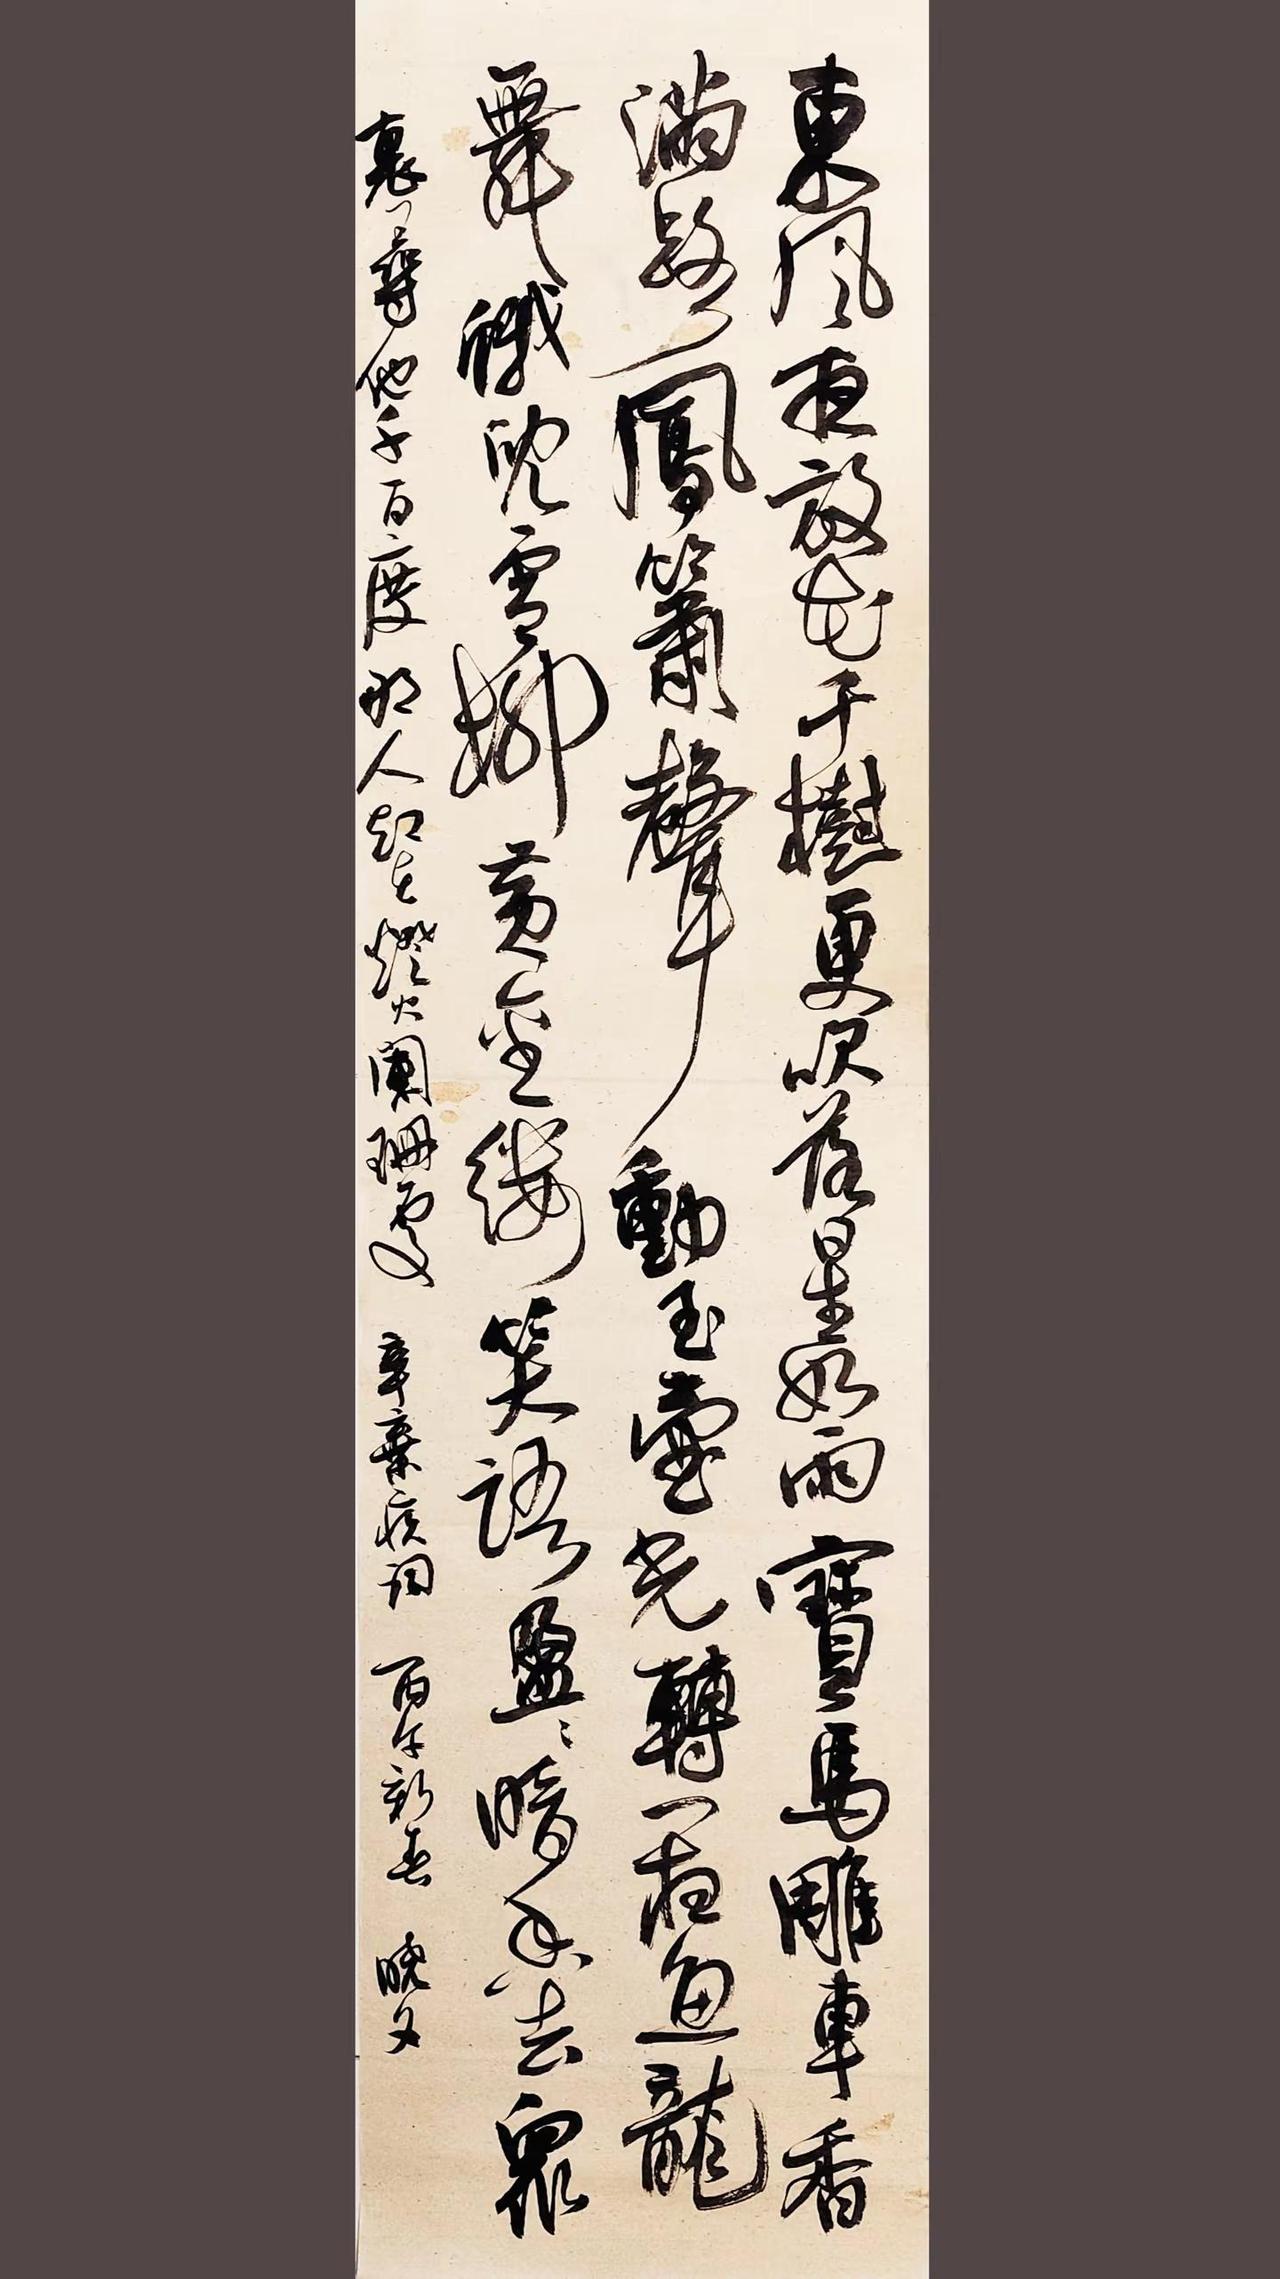 東風夜放花千樹更吹落星如雨寶馬雕車香
滿路鳳簫聲動玉壺光轉一夜魚龍
舞蛾兒雪柳黃金縷笑語盈〻暗香去眾
裏尋他千百度那人却在燈火闌珊處 辛棄疾詞 丙午新春 曉文